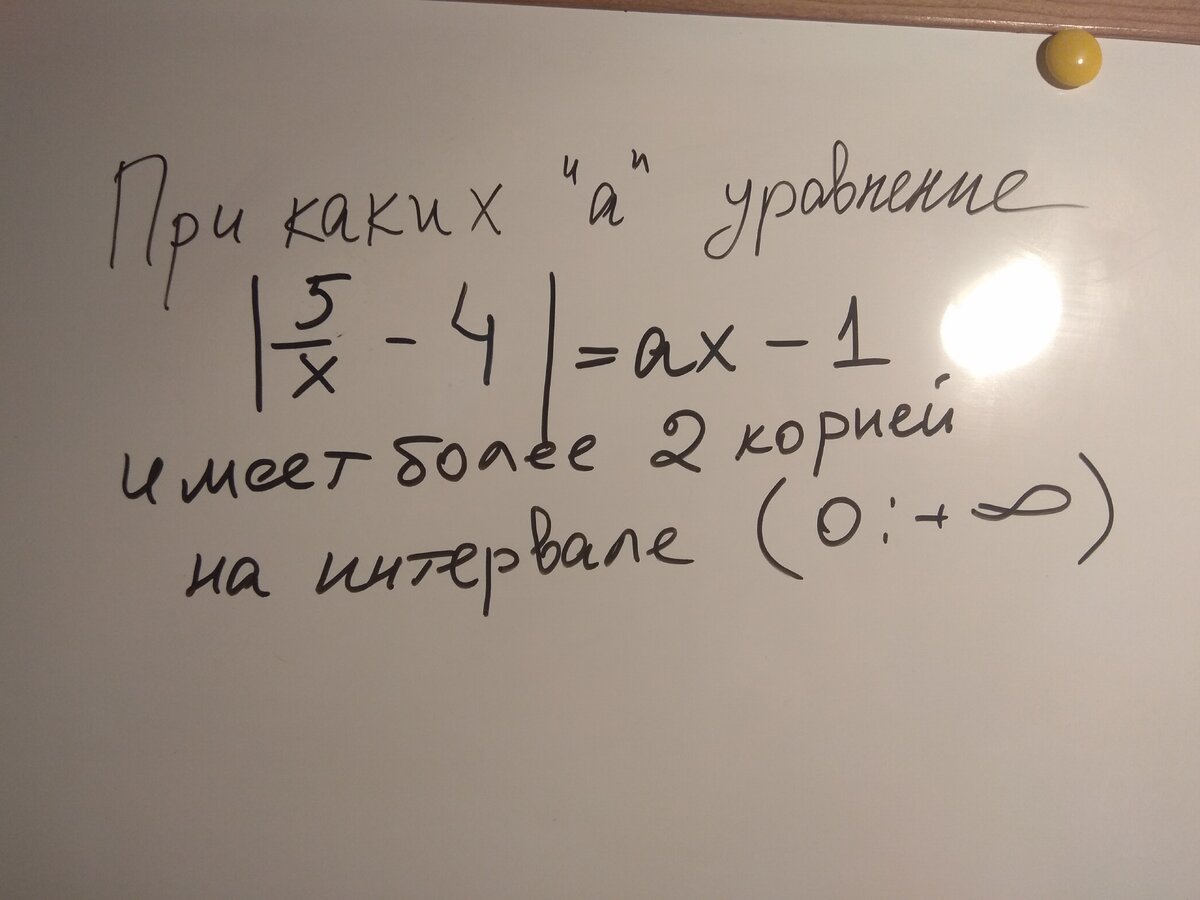 При каких "а" уравнение
|5/x - 4| = ax - 1
имеет более 2 корней
на интервале (0; +∞)